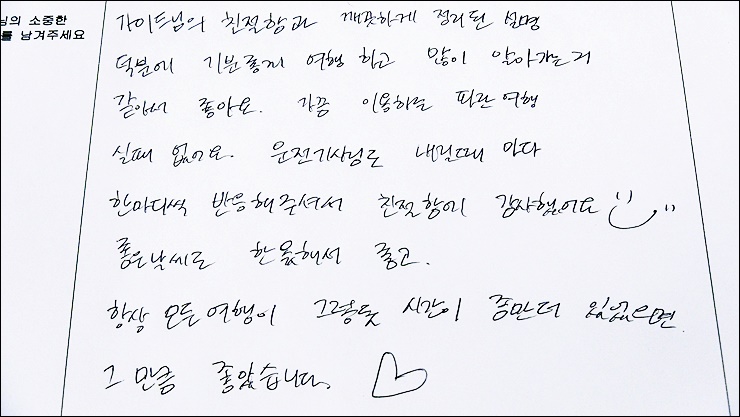 님의 소중한
를 남겨주세요
가이드님의 친절함과 깨끗하게 정리된 설명
덕분에 기분좋게 여행 하고 많이 알아가는거
같아서 좋아요. 가끔 이용하는 파란여행
실패 없어요. 운전기사님도 내릴때 마다
한마디씩 반응해주셔서 친절함에 감사했어요
좋은날씨도 한몫해서 좋고.
항상 모든여행이 그렇듯 시간이 좀만더 있었으면
그 만큼 좋았습니다. ♡